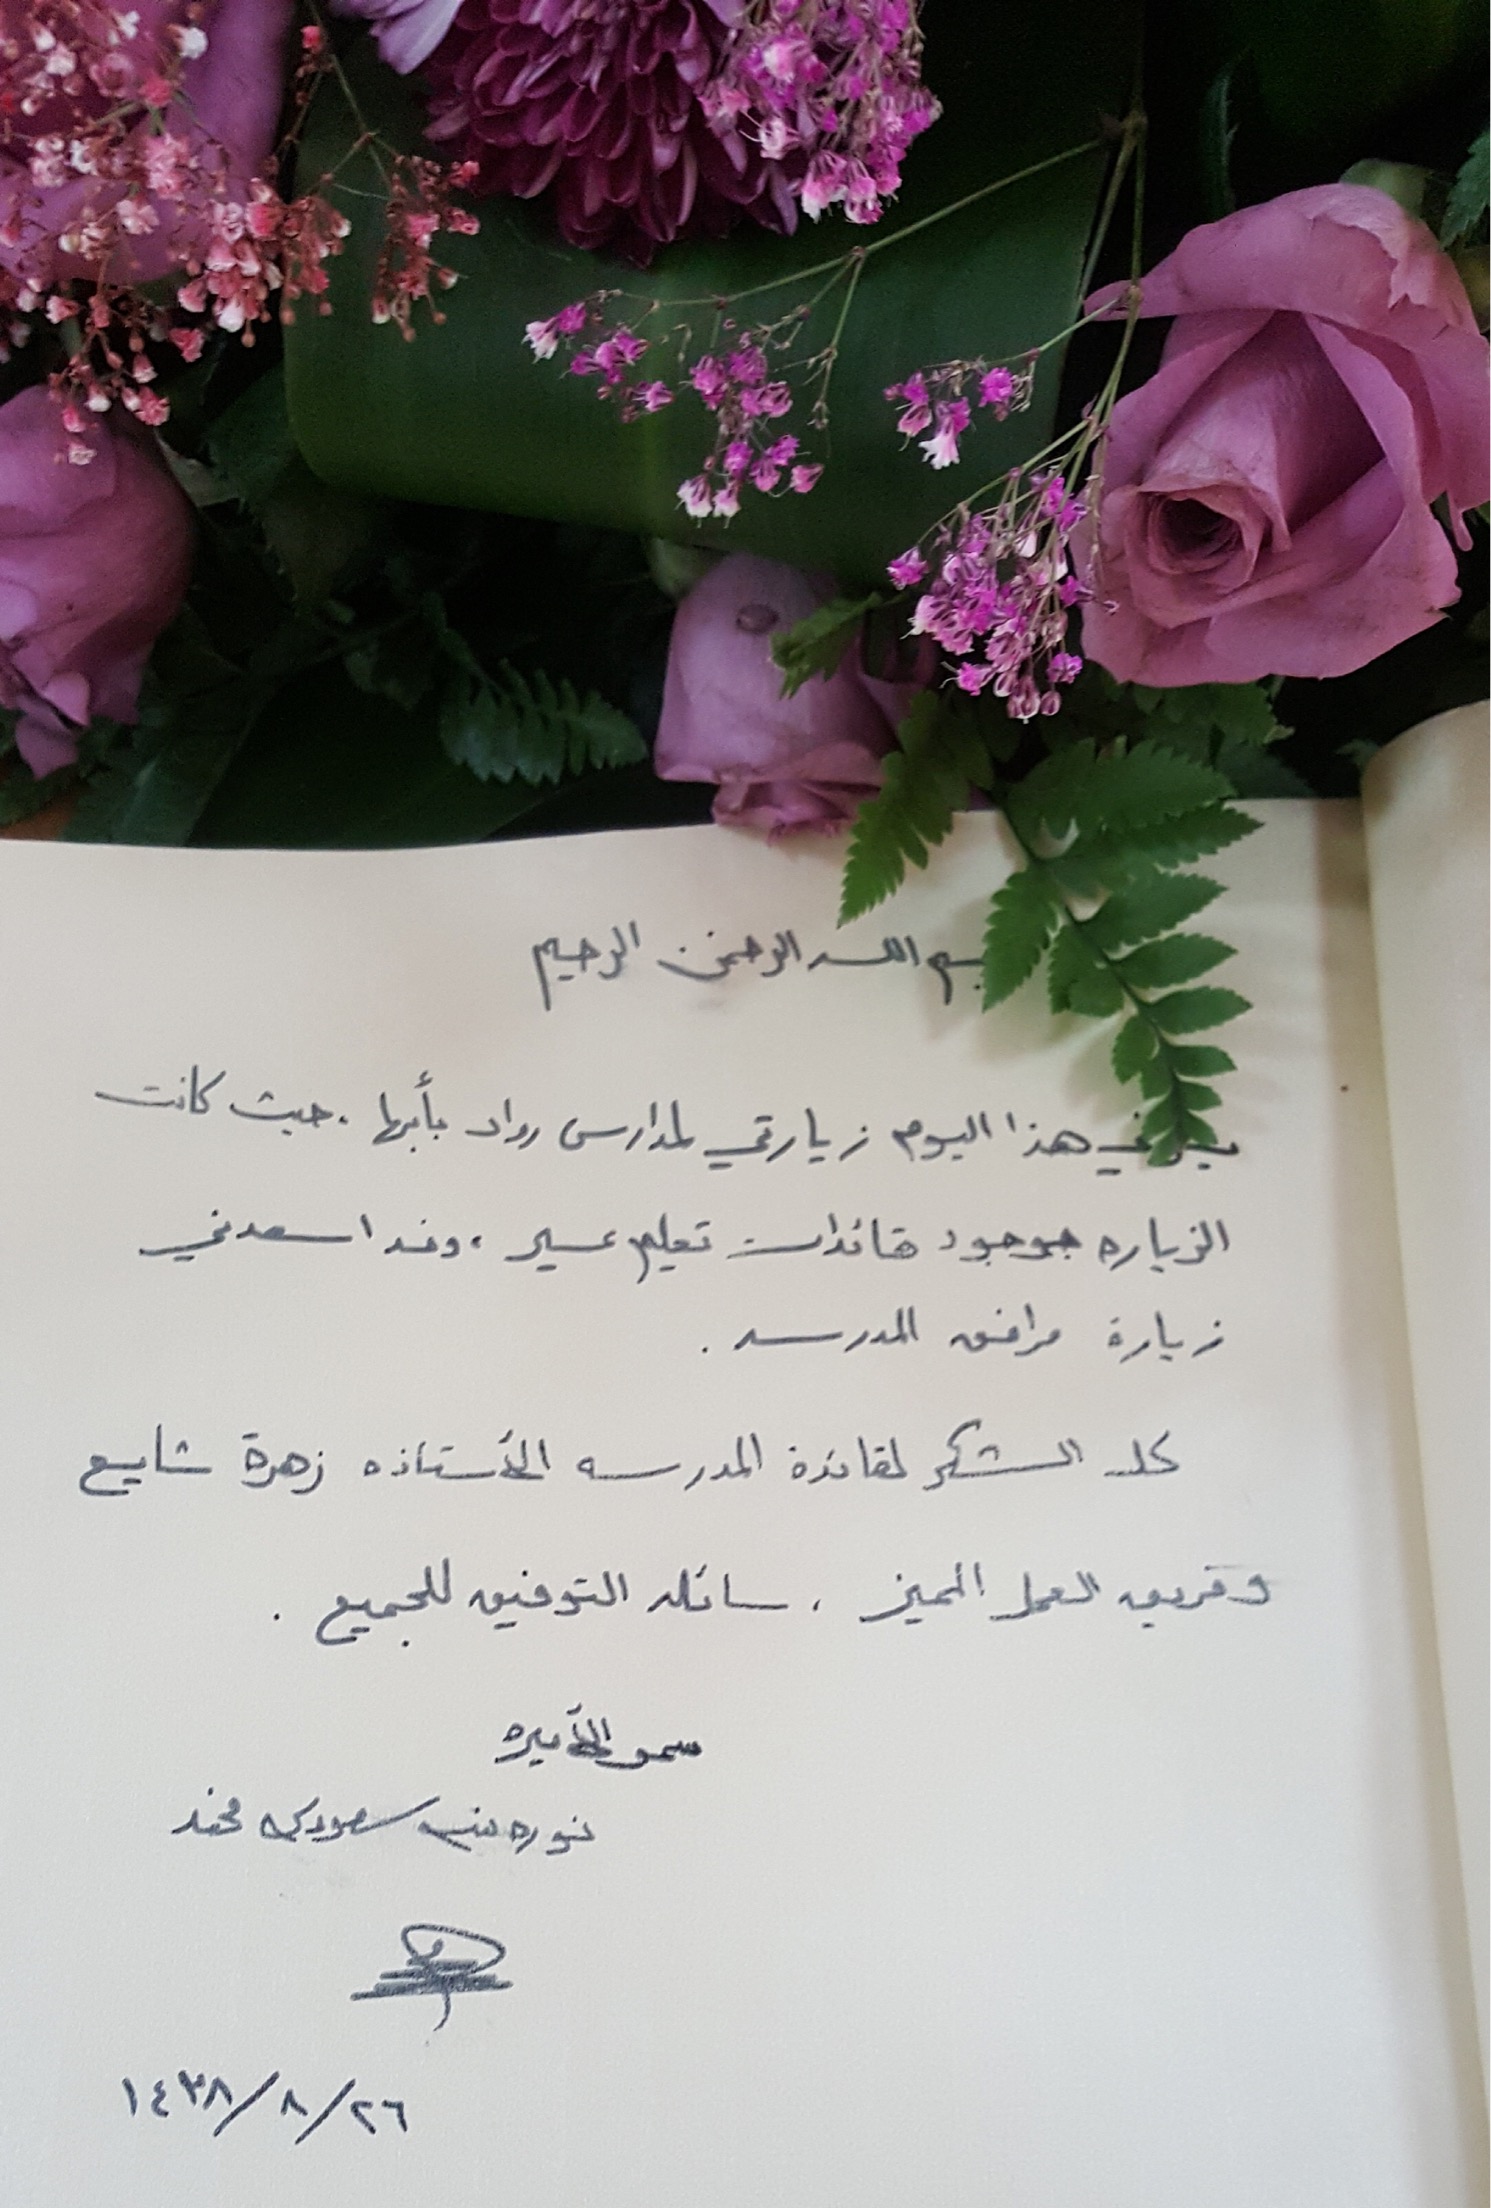 بسم الله الرحمن الرحيم
هذا اليوم زيارتي لمدارس رواد بأبها . حيث كانت
الزياره بوجود قائدات تعليم عسير ، وقد اسعدني
زيارة مرافق المدرسه .
كل الشكر لقائدة المدرسه الأستاذه زهرة شايع
وفريق العمل المميز ، سائله التوفيق للجميع .
سمو الأميره
نوره بنت سعود بن محمد
١٤٣٨/٨/٢٦